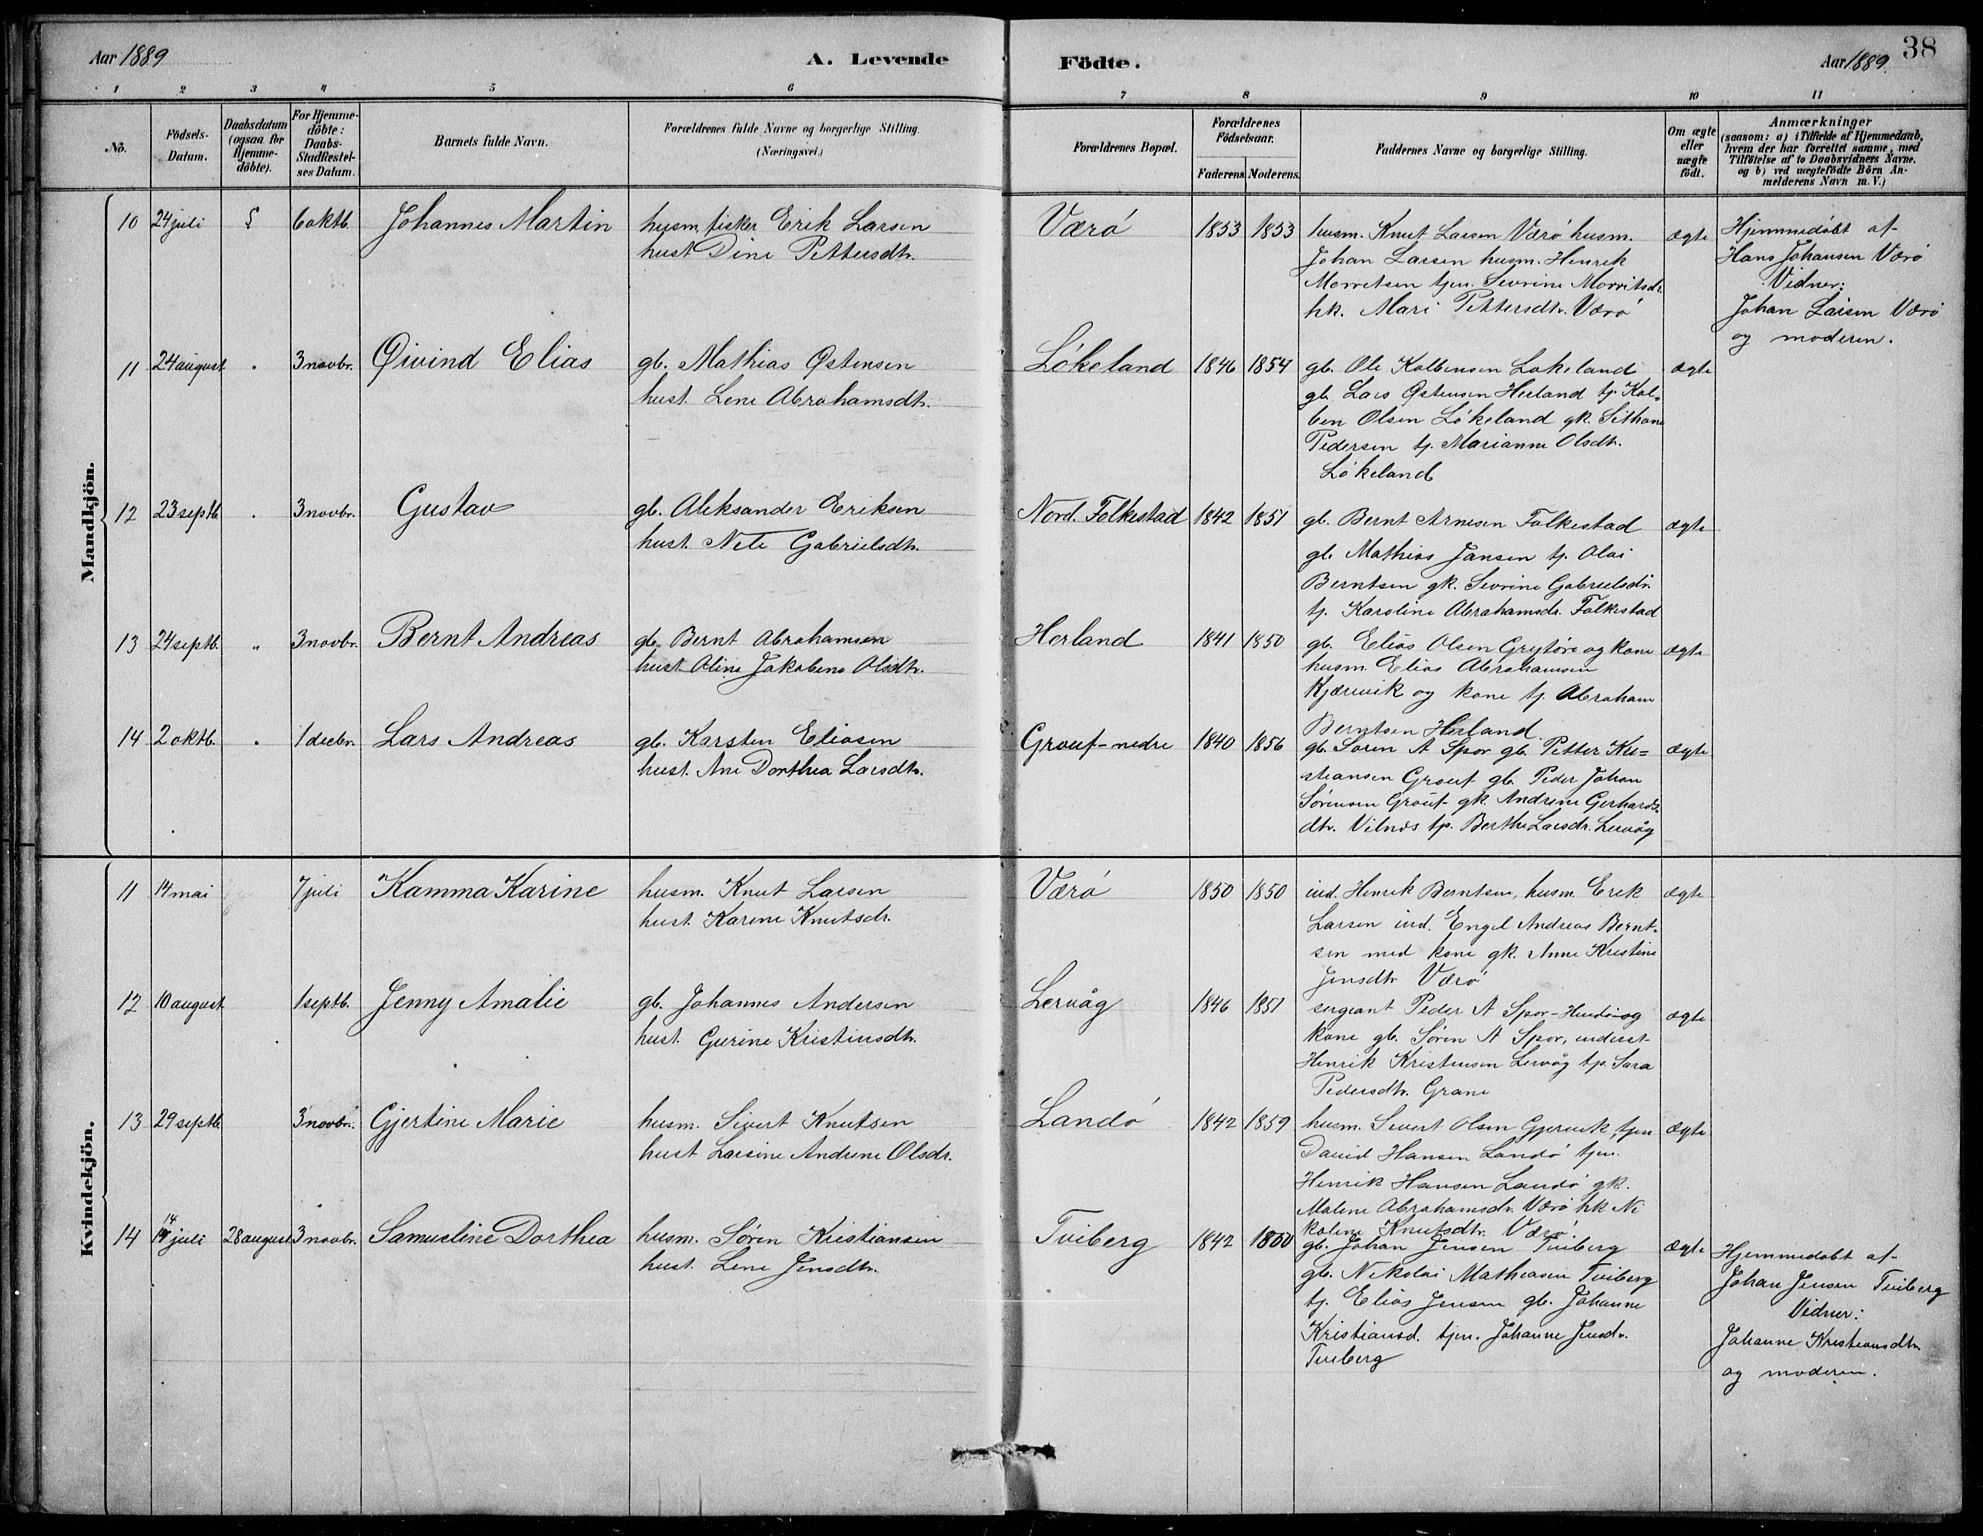 Aar 1889
A. Levende
Födte.
Aar 1889.
38
1 2 3 4 5 6 7 8 9 10 11
No.
Födsels-
Datum.
Daabsdatum
(ogsaa for
Hjemme-
döbte).
For Hjemme-
döbte:
Daabs-
Stadfæstel-
ses Datum.
Barnets fulde Navn.
Forældrenes fulde Navne og borgerlige Stilling.
(Næringsvei.)
Forældrenes Bopæl.
Forældrenes
Födselsaar.
Faderens. Moderens.
Faddernes Navne og borgerlige Stilling.
Om ægte
eller
uægte
födt.
Anmærkninger
(saasom: a) i Tilfælde af Hjemmedaab,
hvem der har forrettet samme, med
Tilföielse af to Daabsvidners Navne.
og b) ved uægtefödte Börn An-
melderens Navn m. V.)
Mandkjön.
10 24 juli § 6 oktb. Johannes Martin
husm. fisker Erik Larsen
hust Dine Pettersdtr.
Værö 1853 1853
husm. Knut Larsen Værö husm.
Johan Larsen husm. Henrik
Morretsen tjen. Sevrine Morritsdr.
hk. Mari Pettersdtr. Værö
ægte
Hjemmedöbt af
Hans Johansen Værö
Vidner:
Johan Larsen Værö
og moderen.
11 24 august " 3 novbr. Øivind Elias
gb. Mathias Østensen
hust. Lene Abrahamsdtr.
Lökeland 1846 1854
gb. Ole Kolbensen Lökeland
gb. Lars Østensen Herland tj. Kol-
ben Olsen Lökeland gk. Sithane
Pedersen tj. Marianne Olsdtr.
Lökeland
ægte
12 23 septb. " 3 novbr. Gustav
gb. Aleksander Eriksen
hust. Nete Gabrielsdtr.
Nord. Folkestad 1842 1851
gb. Bernt Arnesen Folkestad
gb. Mathias Jansen tj. Olai
Berntsen gk. Sevrine Gabrielsdr.
tj. Karoline Abrahamsdr. Folkestad
ægte
13 24 septb. " 3 novbr. Bernt Andreas
gb. Bernt Abrahamsen
hust Oline Jakobena Olsdtr.
Herland 1841 1850
gb. Elias Olsen Grytöre og kone
husm. Elias Abrahamsen
Kjærvik og kone tj. Abraham
Berntsen Herland
ægte
14 2 oktb. " 1 decbr. Lars Andreas
gb. Karsten Eliasen
hust. Ane Dorthea Larsdtr.
Grout-nedre 1840 1856
gb. Sören A Spor gb. Petter Kri=
stiansen Grout gb. Peder Johan
Sörensen Grout gk. Andrine Gerhards-
dtr. Vilnes tp. Berthe Larsdr. Lervåg
ægte
Kvindekjön.
11 14 mai 7 juli Kamma Karine
husm. Knut Larsen
hust. Karine Knutsdr.
Værö 1850 1850
ind. Henrik Berntsen, husm. Erik
Larsen ind. Engel Andreas Bernt-
sen med kone gk. Anne Kristine
Jensdtr Værö
ægte
12 10 august 1 septb. Jenny Amalie
gb. Johannes Andersen
hust. Gurine Kristensdtr.
Lervåg 1846 1851
sergeant Peder A Spor-Hundö og
kone gb. Sören A Spor, inderst
Henrik Kristensen Lervåg tp. Sara
Pedersdtr. Grane
ægte
13 29 septb 3 novbr. Gjertine Marie
husm. Sivert Knutsen
hust Larsine Andrine Olsdr.
Landö 1842 1859
husm. Sivert Olsen Gjervik, tjen
David Hansen Landö tjen.
Henrik Hansen Landö gk.
Malene Abrahamsdr. Værö hk Ni
koline Knutsdtr. Værö.
ægte
14 14 juli 28 august 3 novbr. Samueline Dorthea
husm. Sören Kristiansen
hust. Lene Jensdtr.
Tviberg 1842 1850
gb. Johan Jensen Tviberg
gb. Nikolai Mathiasen Tviberg
tj. Elias Jensen gb. Johanne
Kristiansd. tjen. Johanne Jensdr.
Tviberg
ægte
Hjemmedöbt af
Johan Jensen Tviberg
Vidner:
Johanne Kristiansdtr
og moderen.